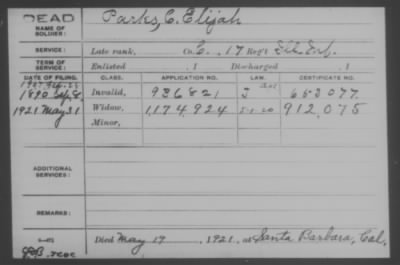 DEAD
NAME OF SOLDIER: Parks, C. Elijah
SERVICE: Late rank, Co. C, 17 Reg't Ill. Inf.
TERM OF SERVICE: Enlisted , 1 Discharged , 1
DATE OF FILING. CLASS. APPLICATION NO. LAW. CERTIFICATE NO.
1890 Invalid, 936821 653077
1921 May 31 Widow, 1,174,924 5-1-20 912,075
Minor,
ADDITIONAL SERVICES:
REMARKS:
Died May 19, 1921, at Santa Barbara, Cal.